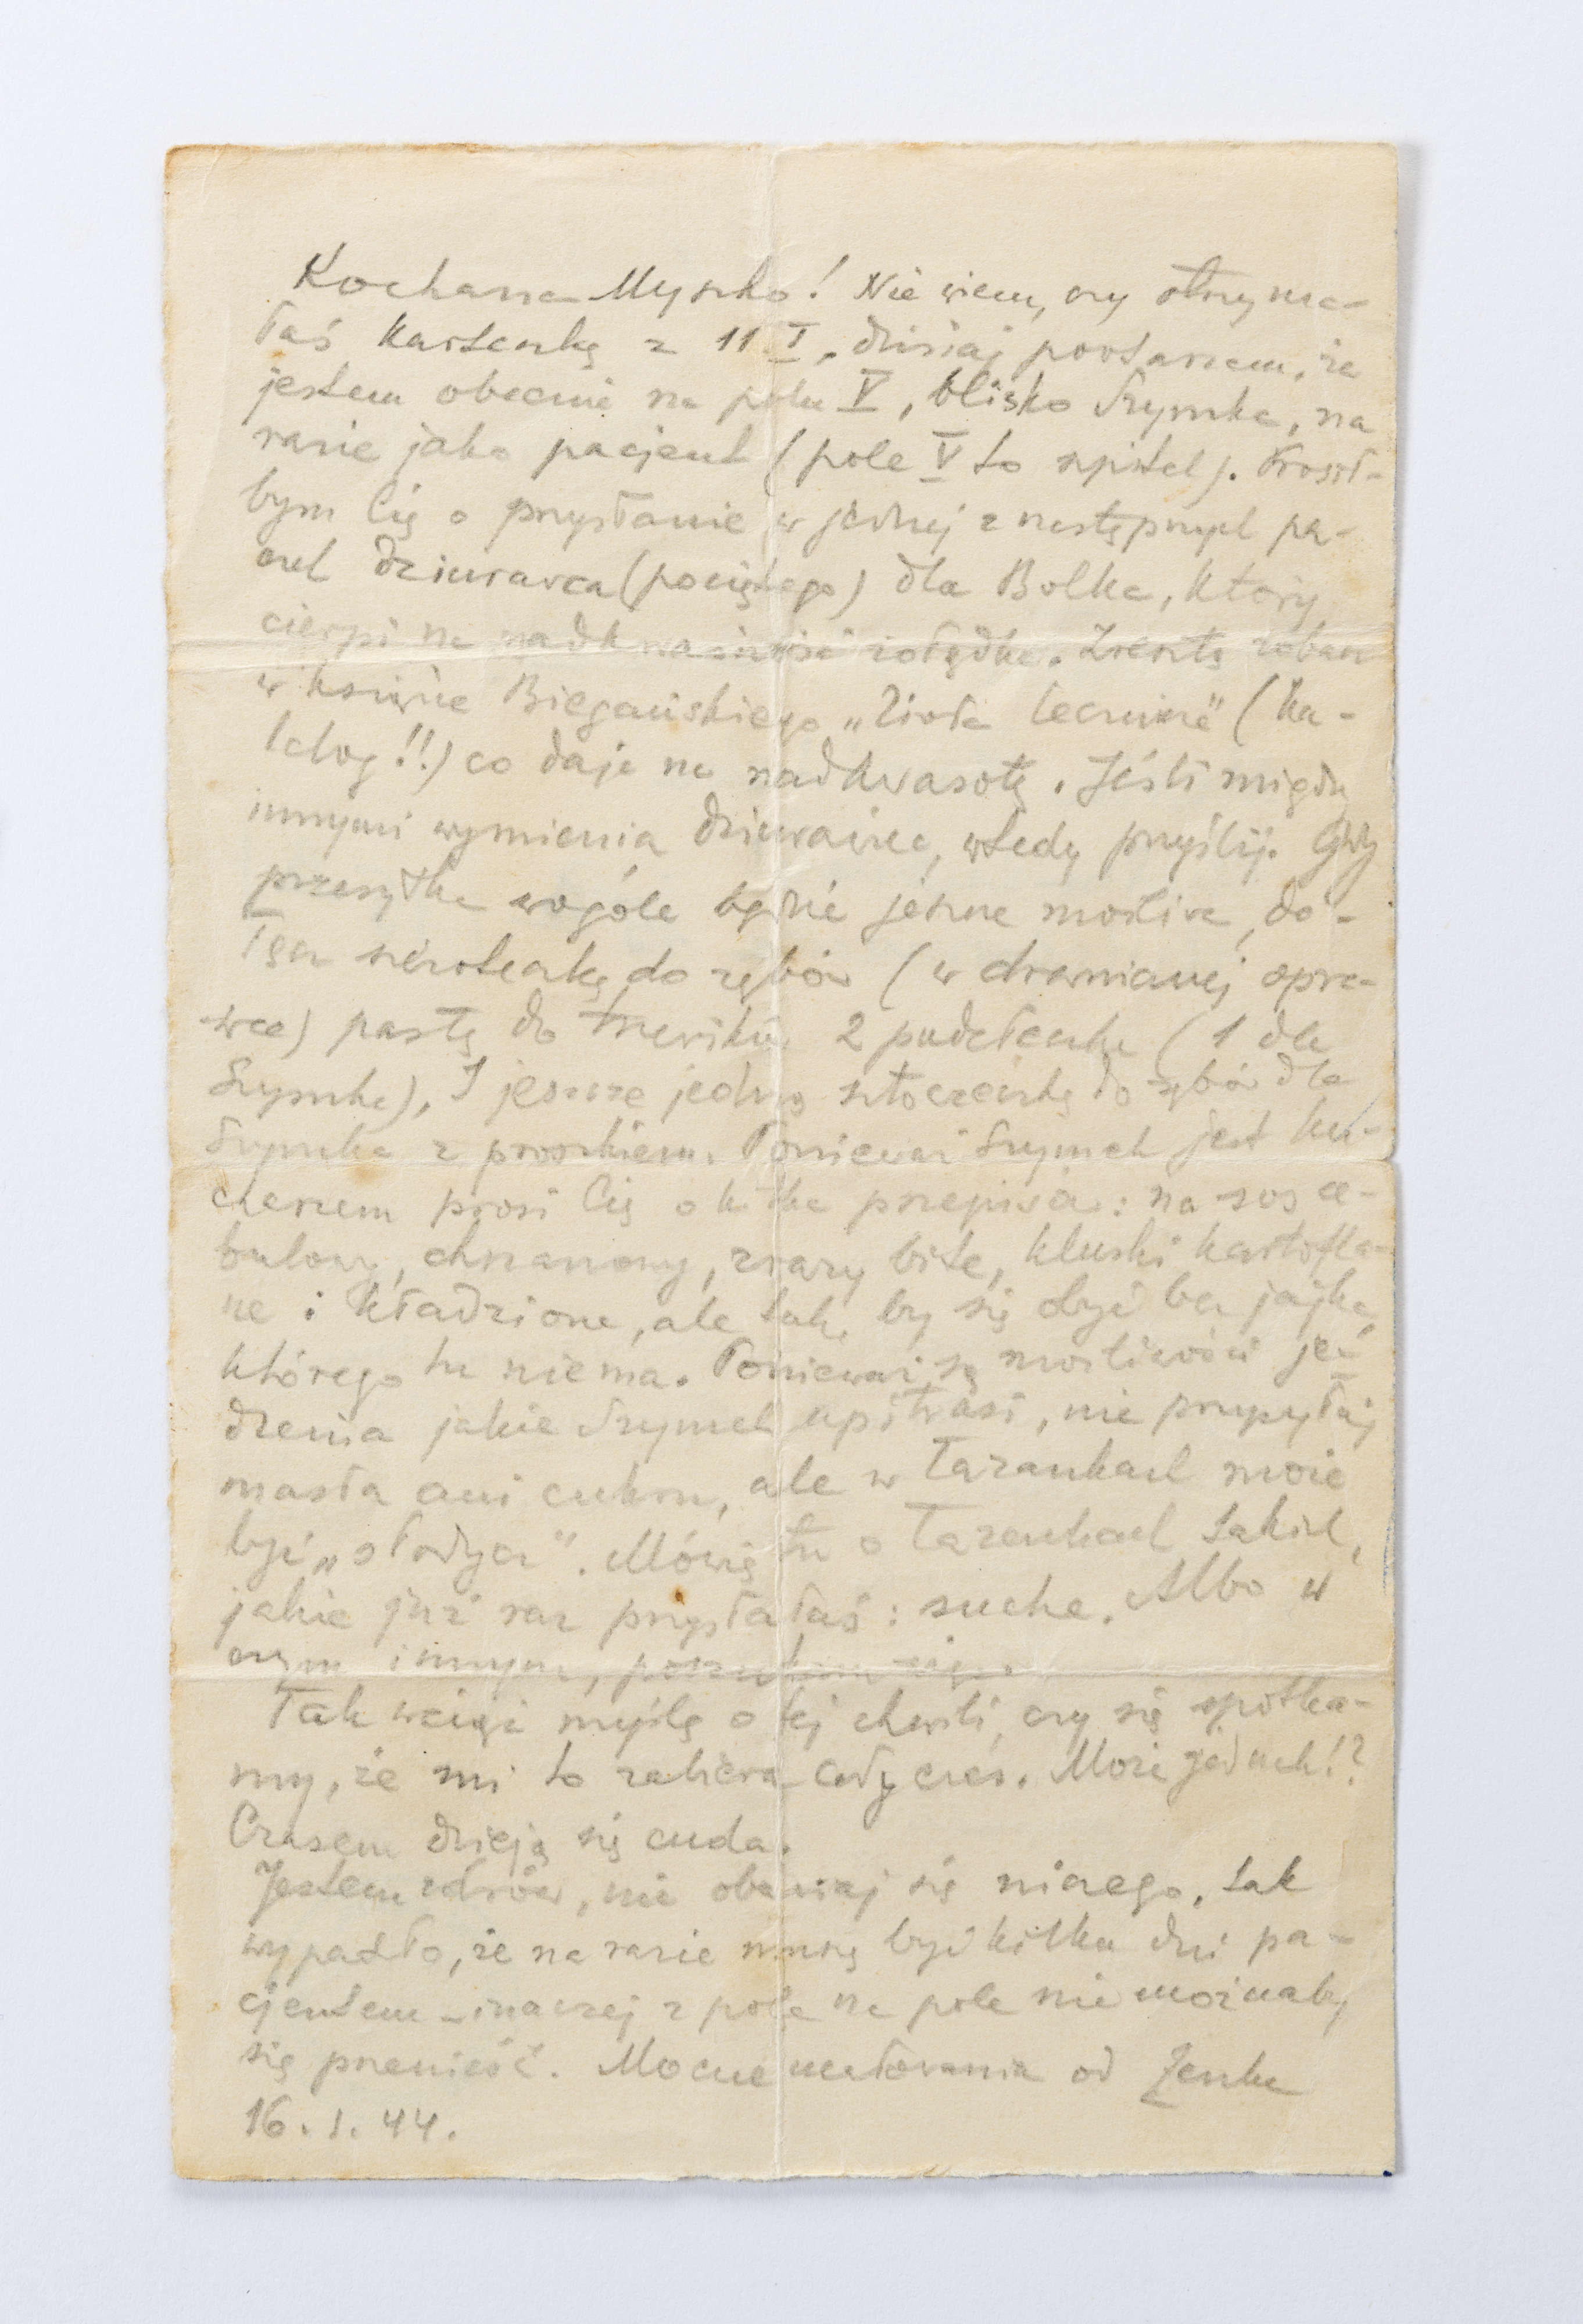 Kochana Myszko! Nie wiem, czy otrzyma-
łaś karteczkę z 11 I, dzisiaj powtarzam, że
jestem obecnie na polu V, blisko Szymka, na
razie jako pacjent (pole V to szpital). Prosił-
bym Cię o przysłanie w jednej z następnych pa-
czek dziurawca (pociętego) dla Bolka, który
cierpi na nadkwaśność żołądka. Zresztą zobacz
w książce Biegańskiego „Zioła lecznicze" (ka-
talog!!) co daje na nadkwasotę. Jeśli między
innymi wymienia dziurawiec, wtedy przyślij. Gdy
przesyłka wogóle będzie jeszcze możliwa, do-
łącz szczoteczkę do zębów (w drewnianej opra-
wce) pastę do trzewików 2 pudełeczka (1 dla
Szymka), I jeszcze jedną szczoteczkę do zębów dla
Szymka z proszkiem. Ponieważ Szymek jest ku-
charzem prosi Cię o kilka przepisów: na sos ce-
bulowy, chrzanowy, zrazy bite, kluski kartofla-
ne i kładzione, ale tak, by się obyć bez jajka,
którego tu niema. Ponieważ są możliwości je-
dzenia jakie Szymek upitrasi, nie przysyłaj
masła ani cukru, ale w łazankach może
być „słodycz". Mówię tu o łazankach takich,
jakie już raz przysłałaś: suche. Albo w
czym innym,
Tak wciąż myślę o tej chwili, czy się spotka-
my, że mi to zabiera cały czas. Może jednak!?
Czasem dzieją się cuda.
Jestem zdrów, nie obawiaj się niczego, tak
wypadło, że na razie muszę być kilka dni pa-
cjentem – inaczej z pola na pole nie możnaby
się przenieść. Mocne ucałowania od Zenka
16. I. 44.